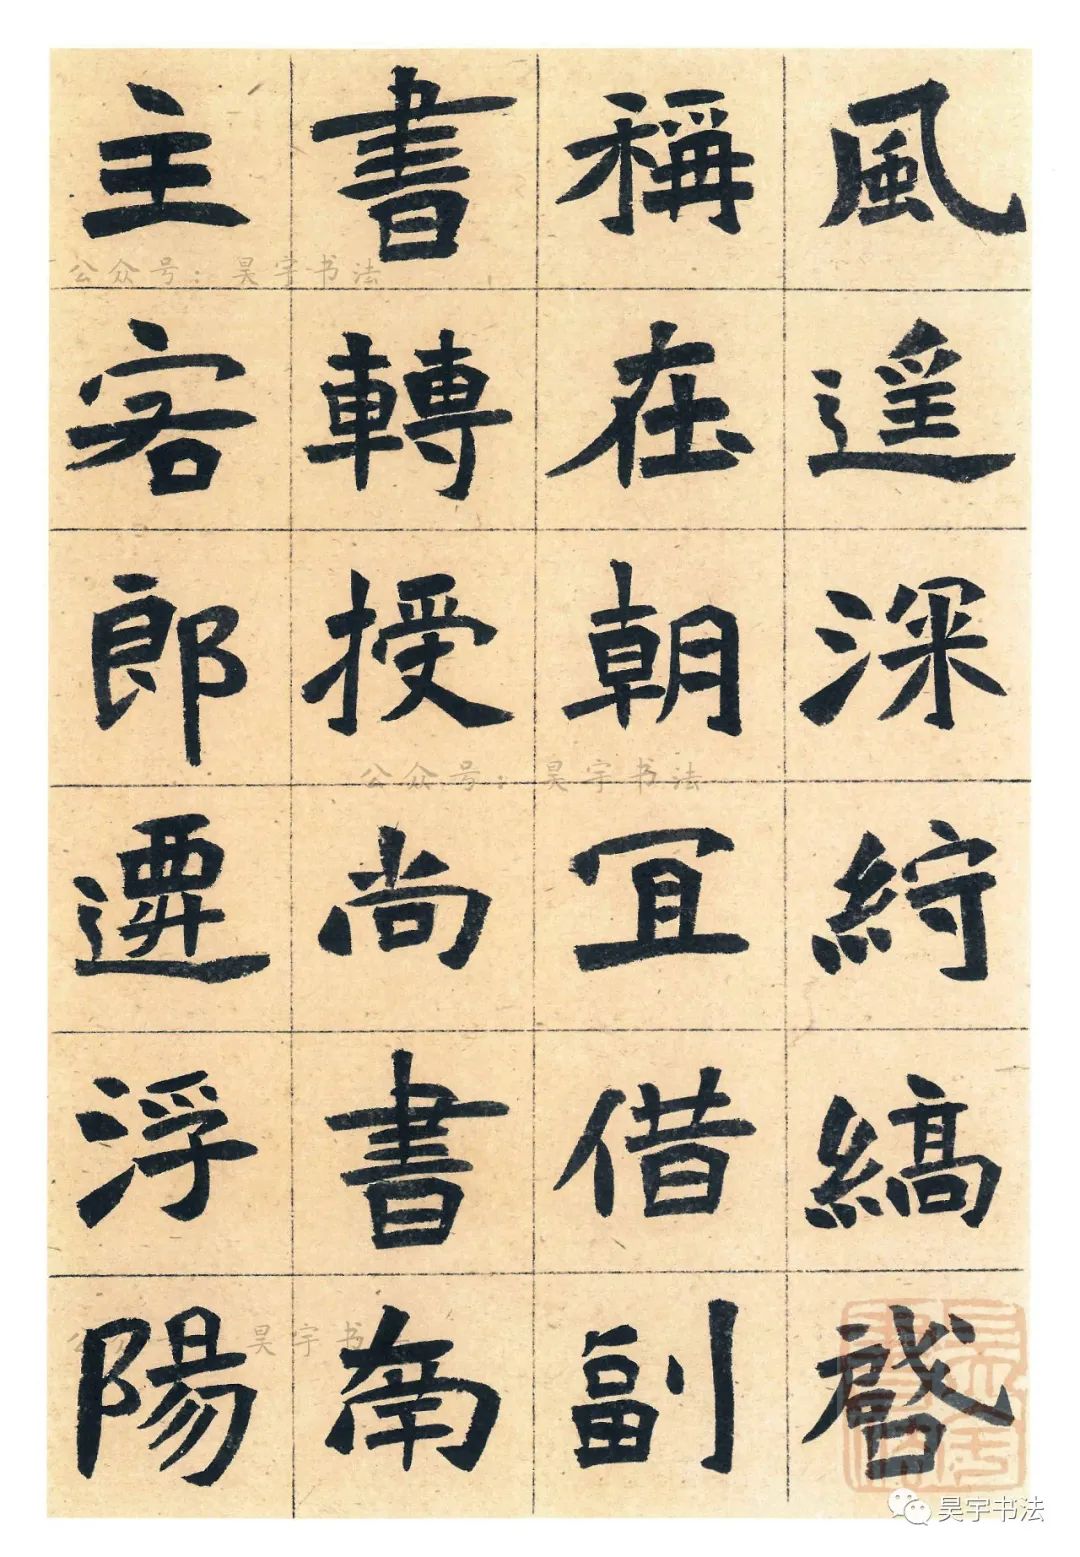 風遥深紵縞啓
稱在朝冝借副
書轉授尚書南
主客郎遷浮陽
公众号：昊宇书法
公众号：昊宇书法
昊宇书
昊宇书法